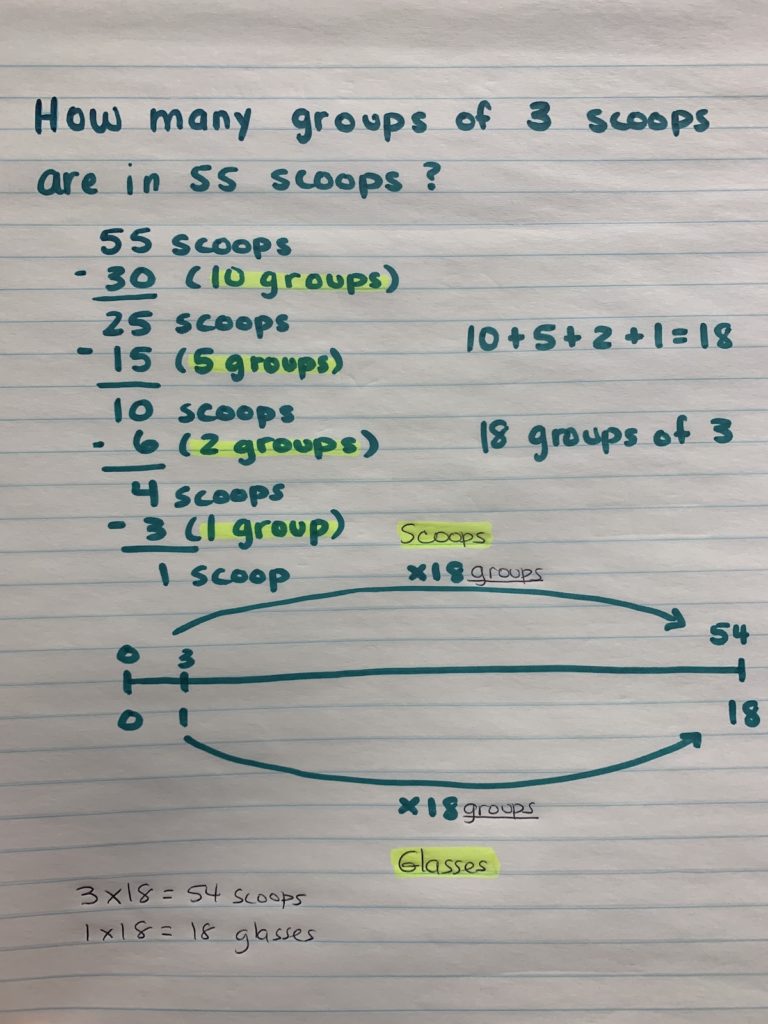 How many groups of 3 scoops
are in 55 scoops?
55 scoops
- 30 (10 groups)
25 scoops
- 15 (5 groups)
10 scoops
- 6 (2 groups)
4 scoops
- 3 (1 group)
1 scoop
10+5+2+1=18
18 groups of 3
Scoops
x18 groups
0 3 54
0 1 18
x18 groups
Glasses
3x18=54 scoops
1x18=18 glasses